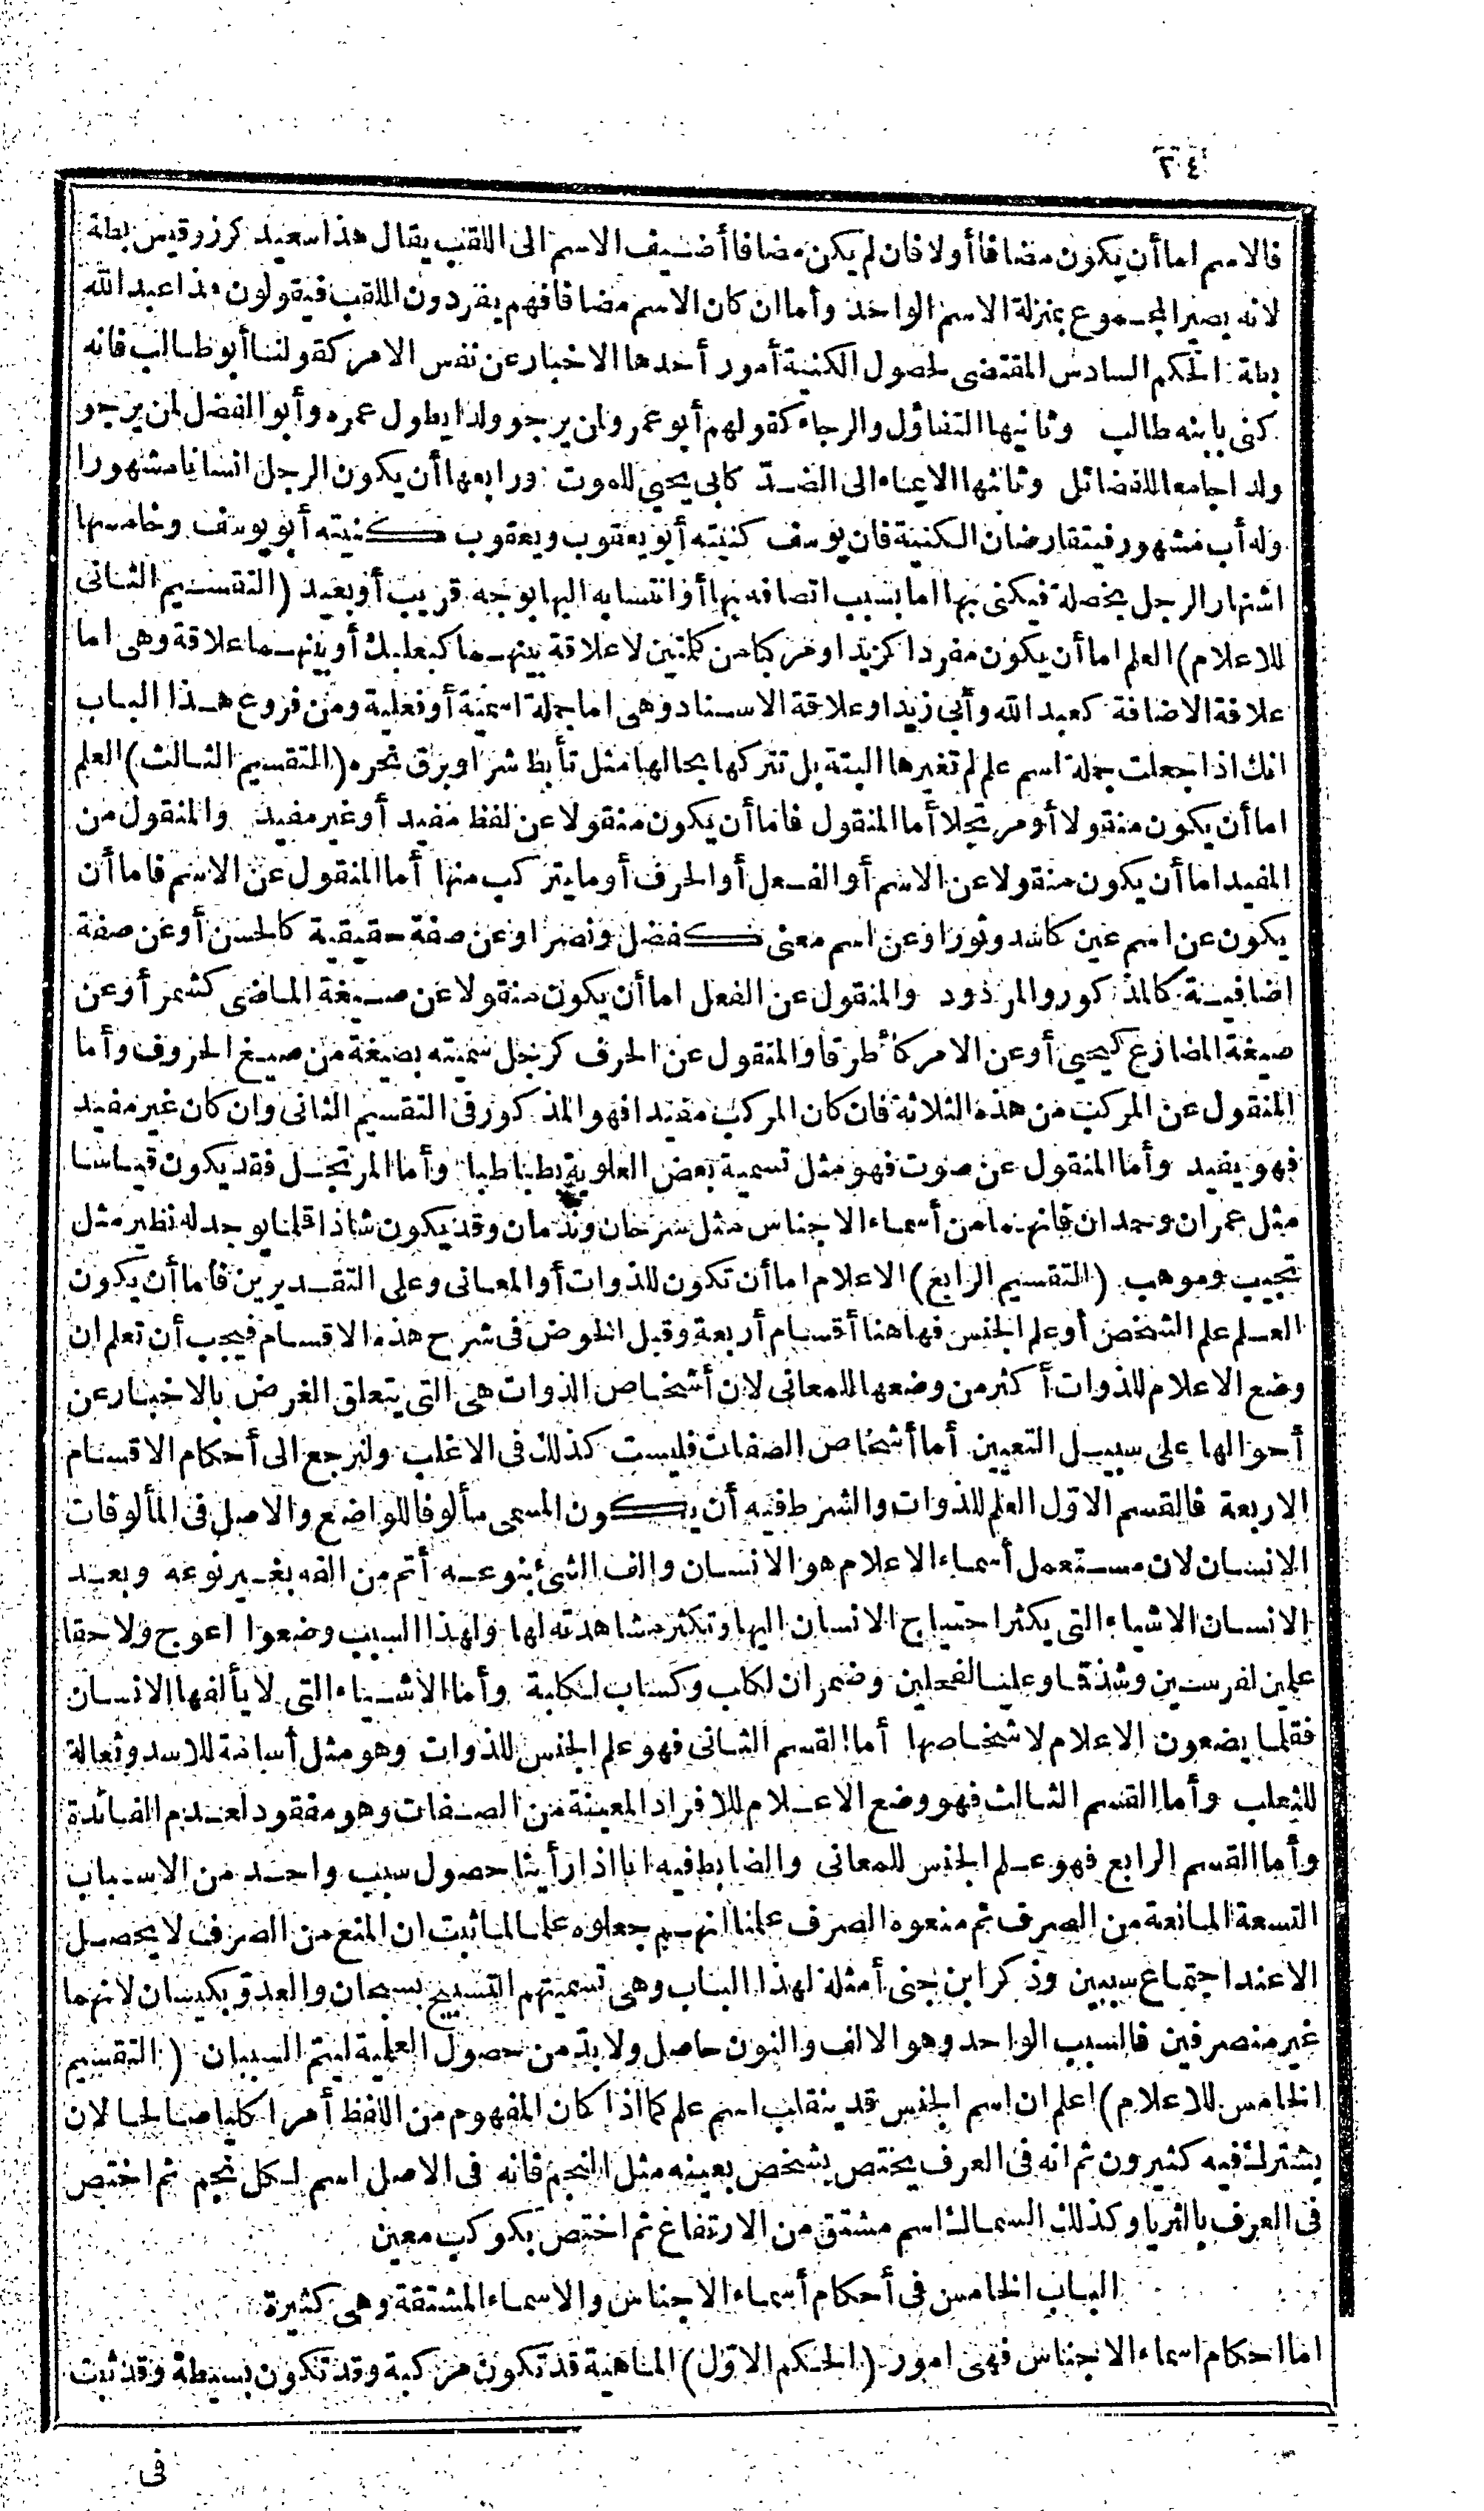 ٢٤
فالاسم اما أن يكون مضافا أولا فان لم يكن مضافا أضيف الاسم الى اللقب يقال هذا سعيد كرز وقيس بطة
لانه يصير المجموع بمنزلة الاسم الواحد وأما ان كان الاسم مضافا فهم يفردون اللقب فيقولون هذا عبد الله
بطة الحكم السادس المقتضى لحصول الكنية أمور أحدها الاخبار عن نفس الامر كقولنا أبو طالب فانه
كنى بابنه طالب وثانيها التفاؤل والرجاء كقولهم أبو عمرو لمن يرجو ولدا يطول عمره وأبو الفضل لمن يرجو
ولدا جامعا للفضائل وثالثها الايماء الى الضد كابى يحيى للموت ورابعها أن يكون الرجل انسانا مشهورا
وله أب مشهور فيتقارضان الكنية فان يوسف كنيته أبو يعقوب ويعقوب كنيته أبو يوسف وخامسها
اشتهار الرجل بخصلة فيكنى بها اما بسبب اتصافه بها أو انتسابه اليها بوجه قريب أو بعيد (التقسيم الثانى
للاعلام) العلم اما أن يكون مفردا كزيد او مركبا من كلمتين لا علاقة بينهما كبعلبك أو بينهما علاقة وهى اما
علاقة الاضافة كعبد الله وأبى زيد او علاقة الاسناد وهى اما جملة اسمية أو فعلية ومن فروع هذا الباب
انك اذا جعلت جملة اسم علم لم تغيرها البتة بل تتركها بحالها مثل تأبط شرا وبرق نحره (التقسيم الثالث) العلم
اما أن يكون منقولا أو مرتجلا أما المنقول فاما أن يكون منقولا عن لفظ مفيد أو غير مفيد والمنقول من
المفيد اما أن يكون منقولا عن الاسم أو الفعل أو الحرف أو ما يتركب منها أما المنقول عن الاسم فاما أن
يكون عن اسم عين كاسد وثور او عن اسم معنى كفضل ونصر او عن صفة حقيقية كالحسن أو عن صفة
اضافية كالمذكور والمردود والمنقول عن الفعل اما أن يكون منقولا عن صيغة الماضى كشمر أو عن
صيغة المضارع كيحيى أو عن الامر كأطرقا والمنقول عن الحرف كرجل سميته بصيغة من صيغ الحروف وأما
المنقول عن المركب من هذه الثلاثة فان كان المركب مفيدا فهو المذكور فى التقسيم الثانى وان كان غير مفيد
فهو يفيد وأما المنقول عن صوت فهو مثل تسمية بعض العلوية بطباطبا وأما المرتجل فقد يكون قياسا
مثل عمران وحمدان فانهما من أسماء الاجناس مثل سرحان وندمان وقد يكون شاذا قلما يوجد له نظير مثل
محبب وموهب (التقسيم الرابع) الاعلام اما أن تكون للذوات أو المعانى وعلى التقديرين فاما أن يكون
العلم علم الشخص أو علم الجنس فهاهنا أقسام أربعة وقبل الخوض فى شرح هذه الاقسام فيجب أن تعلم ان
وضع الاعلام للذوات أكثر من وضعها للمعانى لان أشخاص الذوات هى التى يتعلق الغرض بالاخبار عن
أحوالها على سبيل التعيين أما أشخاص الصفات فليست كذلك فى الاغلب ولنرجع الى أحكام الاقسام
الاربعة فالقسم الاول العلم للذوات والشرط فيه أن يكون المسمى مألوفا للواضع والاصل فى المألوفات
الانسان لان مستعمل أسماء الاعلام هو الانسان والف الشئ بنوعه أتم من الفه بغير نوعه وبعد
الانسان الاشياء التى يكثر احتياج الانسان اليها وتكثر مشاهدته لها ولهذا السبب وضعوا اعوج ولاحقا
علمين لفرسين وشذقما وعليا لفحلين وضمران لكلب وكساب لكلبة وأما الاشياء التى لا يألفها الانسان
فقلما يضعون الاعلام لاشخاصها أما القسم الثانى فهو علم الجنس للذوات وهو مثل أسامة للاسد وثعالة
للثعلب وأما القسم الثالث فهو وضع الاعلام للافراد المعينة من الصفات وهو مفقود لعدم الفائدة
وأما القسم الرابع فهو علم الجنس للمعانى والضابط فيه انا اذا رأينا حصول سبب واحد من الاسباب
التسعة المانعة من الصرف ثم منعوه الصرف علمنا انهم جعلوه علما لما ثبت ان المنع من الصرف لا يحصل
الا عند اجتماع سببين وذكر ابن جنى أمثلة لهذا الباب وهى تسميتهم التسبيح بسبحان والغدو بكيسان لانهما
غير منصرفين فالسبب الواحد وهو الالف والنون حاصل ولا بد من حصول العلمية ليتم السببان (التقسيم
الخامس للاعلام) اعلم ان اسم الجنس قد ينقلب اسم علم كما اذا كان المفهوم من اللفظ أمرا كليا صالحا لان
يشترك فيه كثيرون ثم انه فى العرف يختص بشخص بعينه مثل النجم فانه فى الاصل اسم لكل نجم ثم اختص
فى العرف بالثريا وكذلك السماك اسم مشتق من الارتفاع ثم اختص بكوكب معين
الباب الخامس فى أحكام أسماء الاجناس والاسماء المشتقة وهى كثيرة
اما احكام اسماء الاجناس فهى امور (الحكم الاول) الماهية قد تكون مركبة وقد تكون بسيطة وقد ثبت
فى